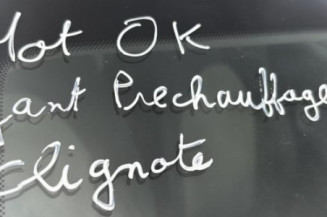 Mot OK
yant Prechauffage
Clignote